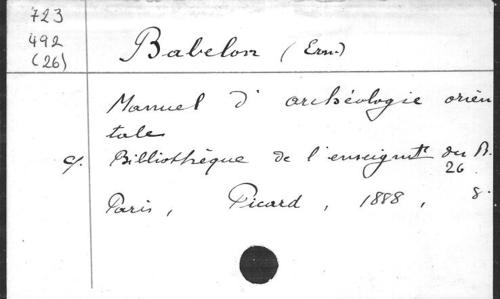 723
492
(26)
Babelon (Ern.)
Manuel d'archéologie orien
tale
cf. Bibliothèque de l'enseignt du B.
26
Paris, Picard, 1888, 8.